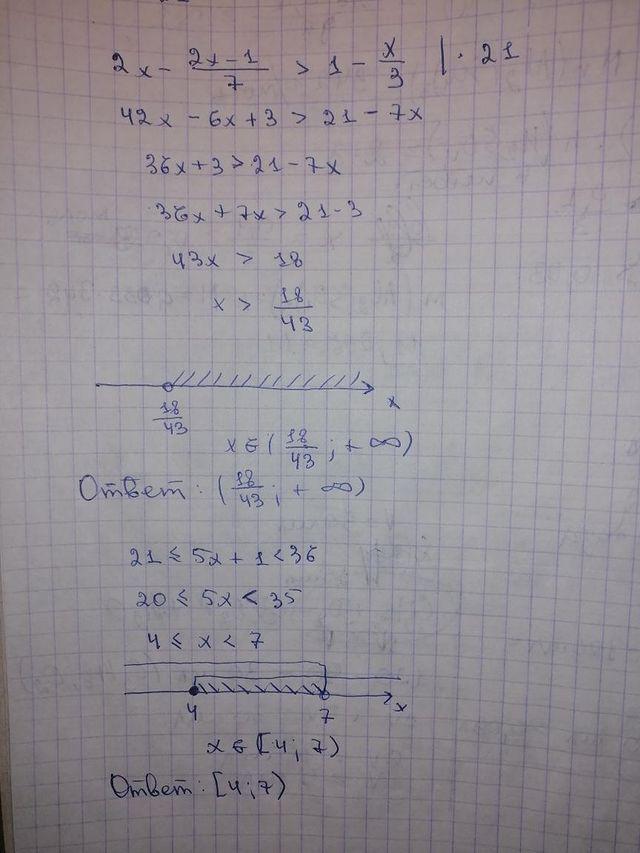 2x - (2x-1)/7 > 1 - x/3 | · 21
42x - 6x + 3 > 21 - 7x
36x + 3 > 21 - 7x
36x + 7x > 21 - 3
43x > 18
x > 18/43
18/43 x
x ∈ (18/43; + ∞)
Ответ: (18/43; + ∞)
21 ≤ 5x + 1 < 36
20 ≤ 5x < 35
4 ≤ x < 7
4 7 x
x ∈ [4; 7)
Ответ: [4; 7)